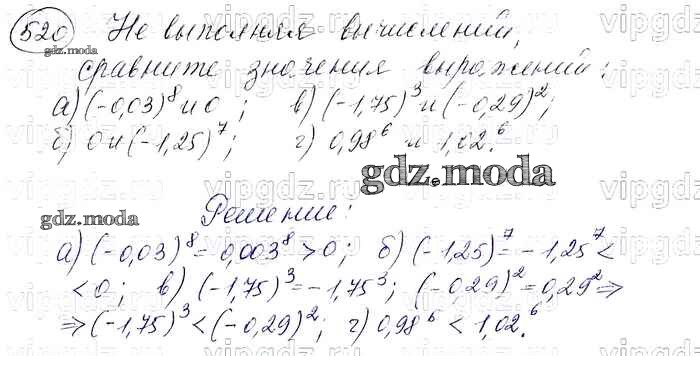 520 Не выполняя вычислений,
gdz.moda
сравните значения выражений:
а) (-0,03)⁸ и 0; в) (-1,75)³ и (-0,29)²;
б) 0 и (-1,25)⁷; г) 0,98⁶ и 1,02⁶.
gdz.moda
gdz.moda
Решение:
а) (-0,03)⁸ = 0,003⁸ > 0; б) (-1,25)⁷ = -1,25⁷ <
< 0; в) (-1,75)³ = -1,75³; (-0,29)² = 0,29² ⇒
⇒ (-1,75)³ < (-0,29)²; г) 0,98⁶ < 1,02⁶.